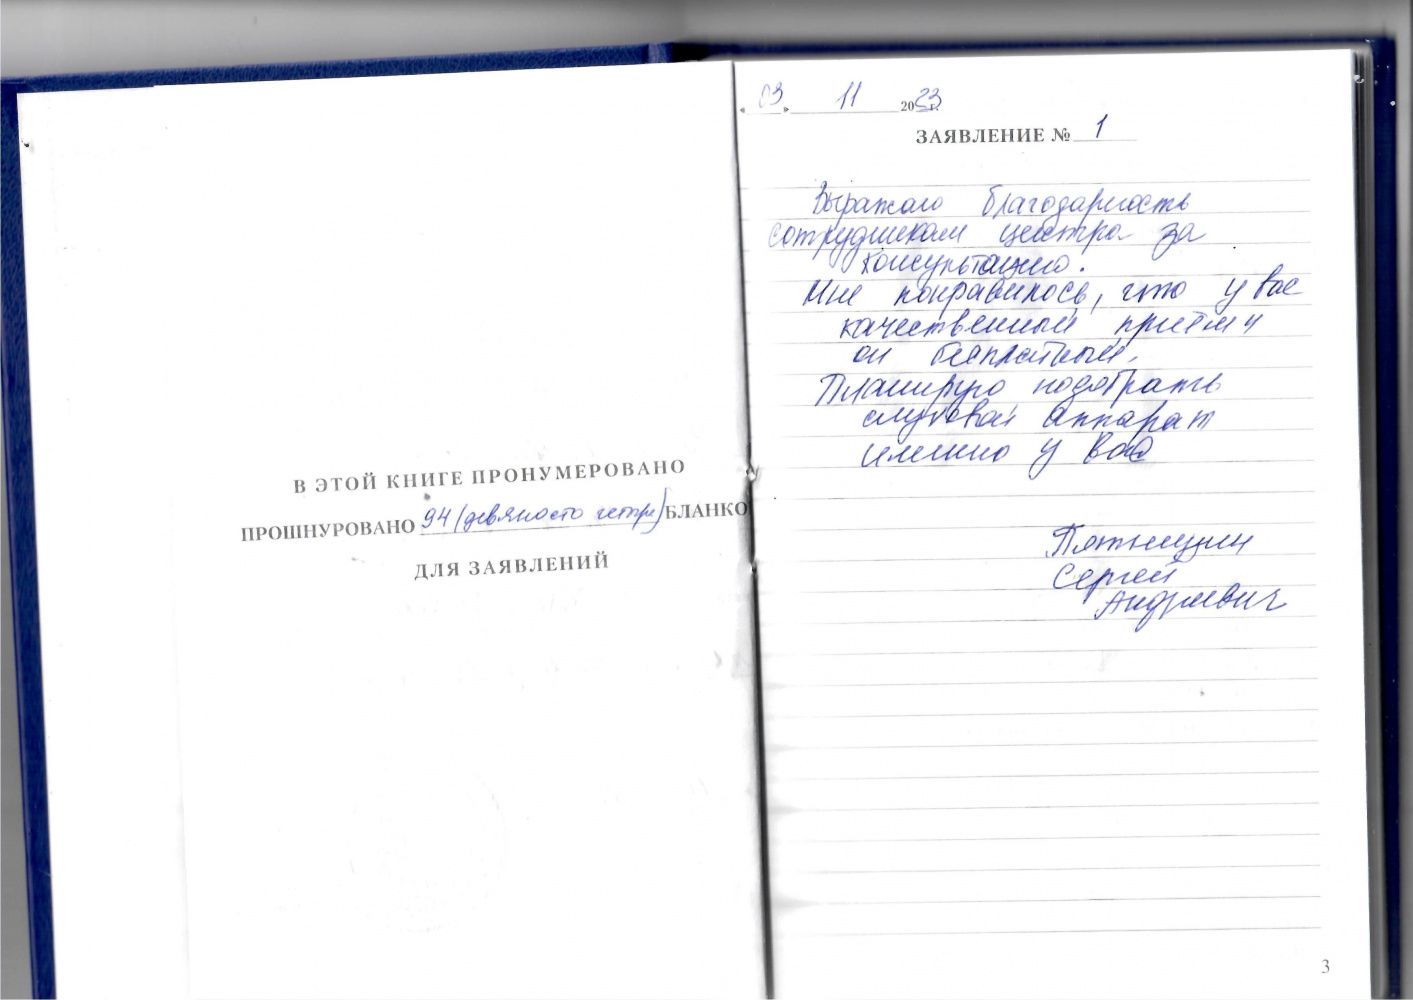 В ЭТОЙ КНИГЕ ПРОНУМЕРОВАНО
ПРОШНУРОВАНО 94 (девяносто четыре) БЛАНКО
ДЛЯ ЗАЯВЛЕНИЙ
« 03 » 11 2023 г.
ЗАЯВЛЕНИЕ № 1
Выражаю благодарность
сотрудникам центра за
консультацию.
Мне понравилось, что у вас
качественный приём и
он бесплатный.
Планирую подобрать
слуховой аппарат
именно у Вас
Пятницин
Сергей
Андреевич
3